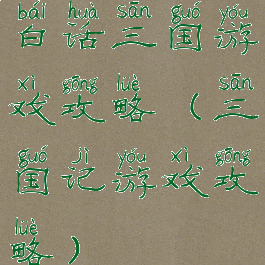 bái huà sān guó yóu
白话三国游
xì gōng lüè sān
戏攻略(三
guó jì yóu xì gōng
国记游戏攻
lüè
略)